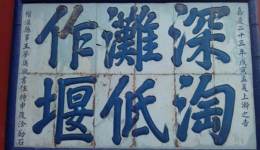 嘉慶二十三年戊寅孟夏上浣之吉
深淘
灘低
作堰